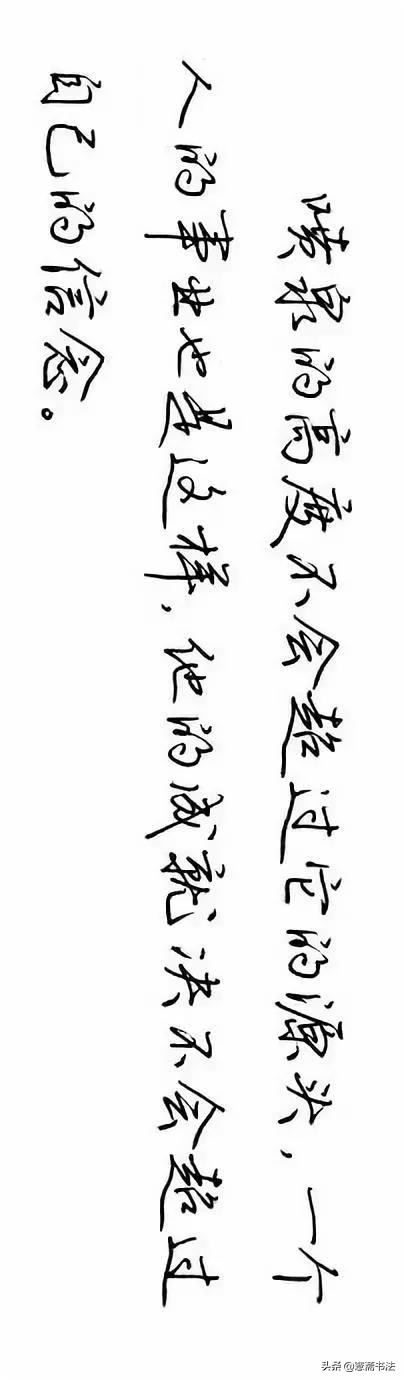 喷泉的高度不会超过它的源头，一个
人的事业也是这样，他的成就决不会超过
自己的信念。
头条@憲斋书法